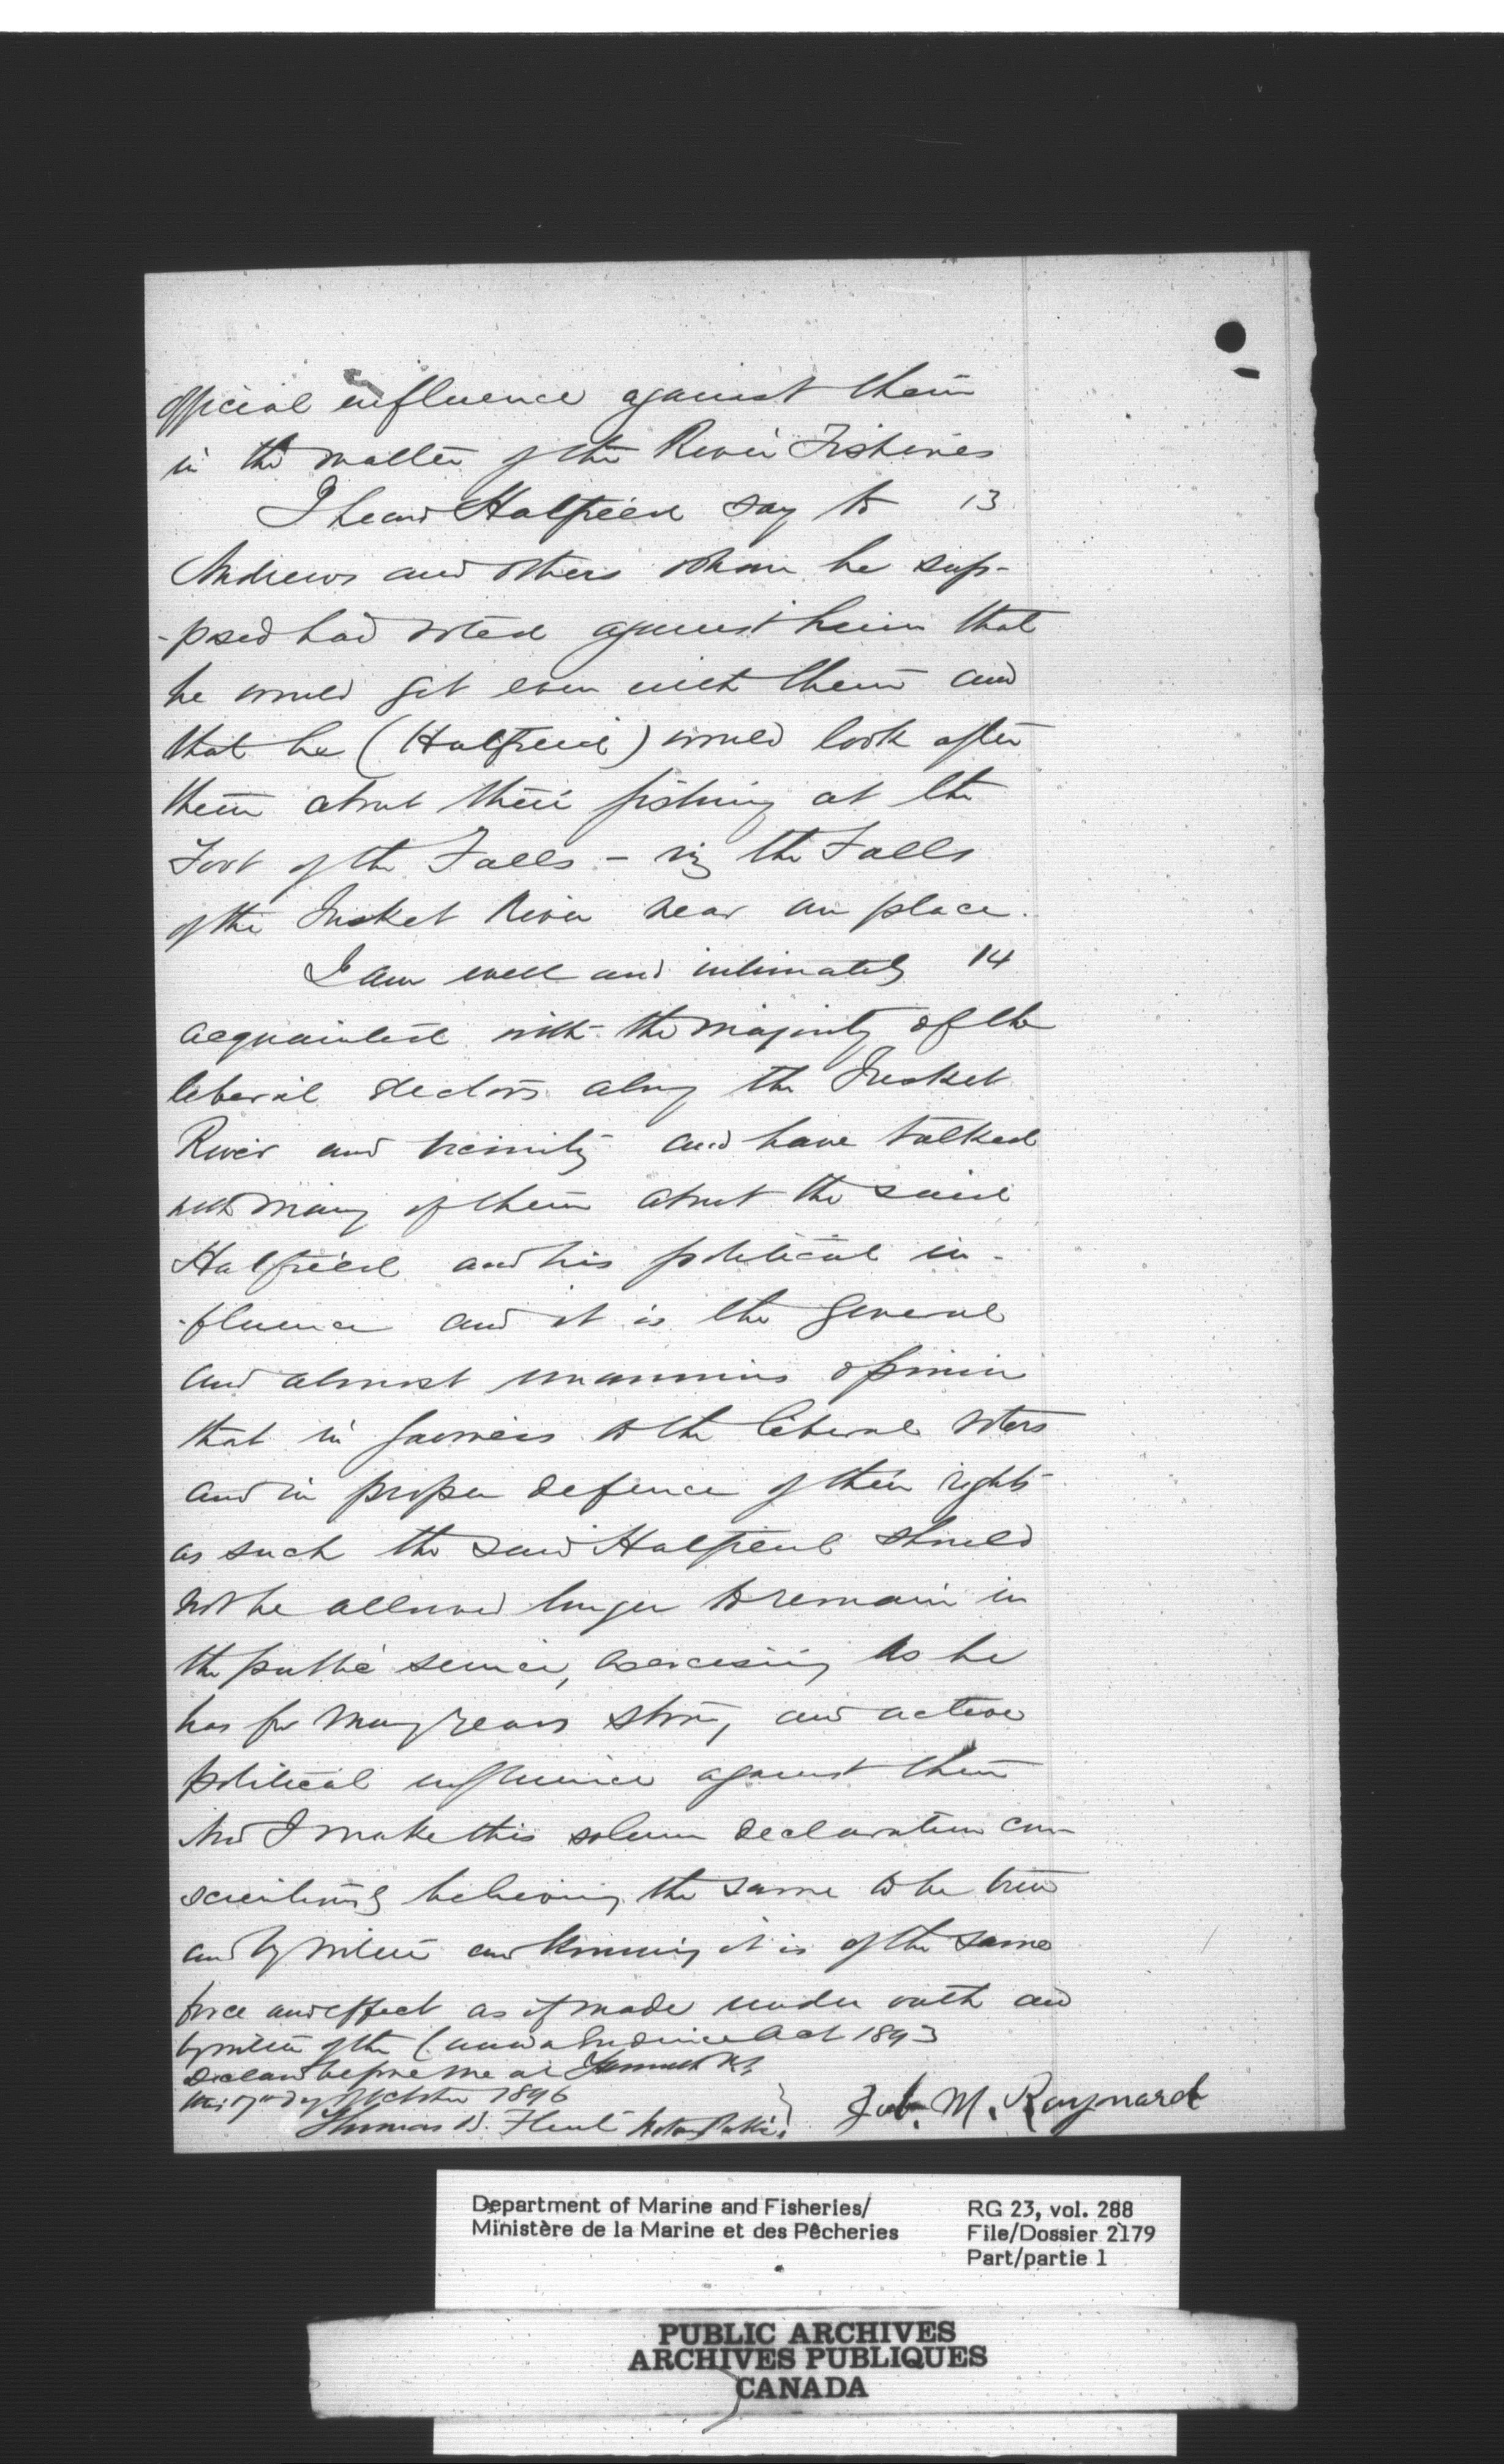 official influence against them
in the matter of the River Fisheries
I heard Hatfield say to 13
Andrews and others whom he sup-
-posed had voted against him that
he would get even with them and
that he (Hatfield) would look after
them about their fishing at the
Foot of the Falls - viz the Falls
of the Tusket River near our place.
I am well and intimately 14
acquainted with the majority of the
liberal electors along the Tusket
River and vicinity and have talked
with many of them about the said
Hatfield and his political in-
-fluence and it is the general
and almost unanimous opinion
that in fairness to the liberal voters
and in proper defence of their rights
as such the said Hatfield should
not be allowed longer to remain in
the public service, exercising as he
has for many years strong and active
political influence against them
And I make this solemn declaration con-
scientiously believing the same to be true
and by virtue and knowing it is of the same
force and effect as if made under oath and
by virtue of the Canada Evidence Act 1893
Declared before me at Yarmouth N.S.
this 17th day of October 1896
Thomas B. Flint Notary Public
M. Raynard
Department of Marine and Fisheries/
Ministère de la Marine et des Pêcheries
RG 23, vol. 288
File/Dossier 2179
Part/partie 1
PUBLIC ARCHIVES
ARCHIVES PUBLIQUES
CANADA